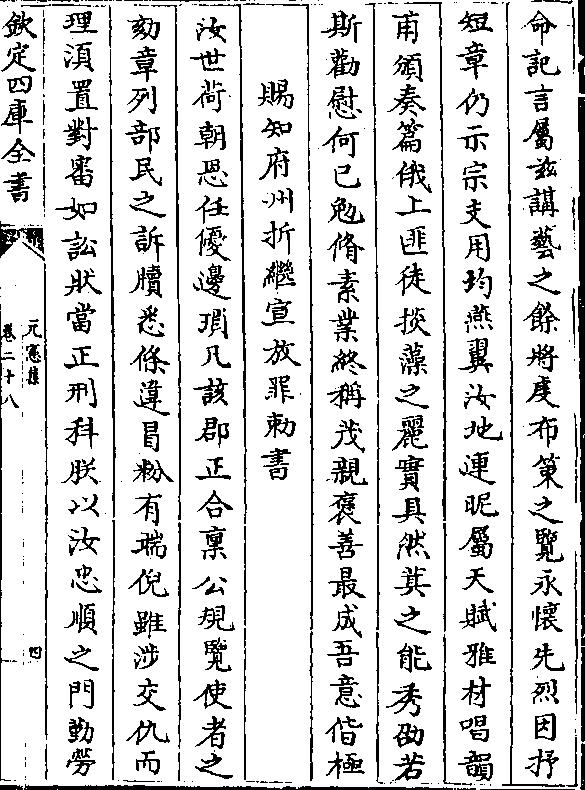 命記言屬兹講藝之餘將度布策之覽永懷先烈因抒
短章仍示宗支用均燕翼汝地連昵屬天賦雅材唱韻
甫頒奏篇俄上匪徒掞藻之麗實具然萁之能秀劭若
斯勸慰何已勉脩素業終稱茂親褒善最成吾意偕極
賜知府州折繼宣放罪勅書
汝世荷朝恩任優邊瑣凡該郡正合稟公規覽使者之
劾章列部民之訴牘悉條違冒粉有端倪雖涉交仇而
理湏置對審如訟狀當正刑科朕以汝忠順之門勤勞
欽定四庫全書
元憲集
卷二十八
四